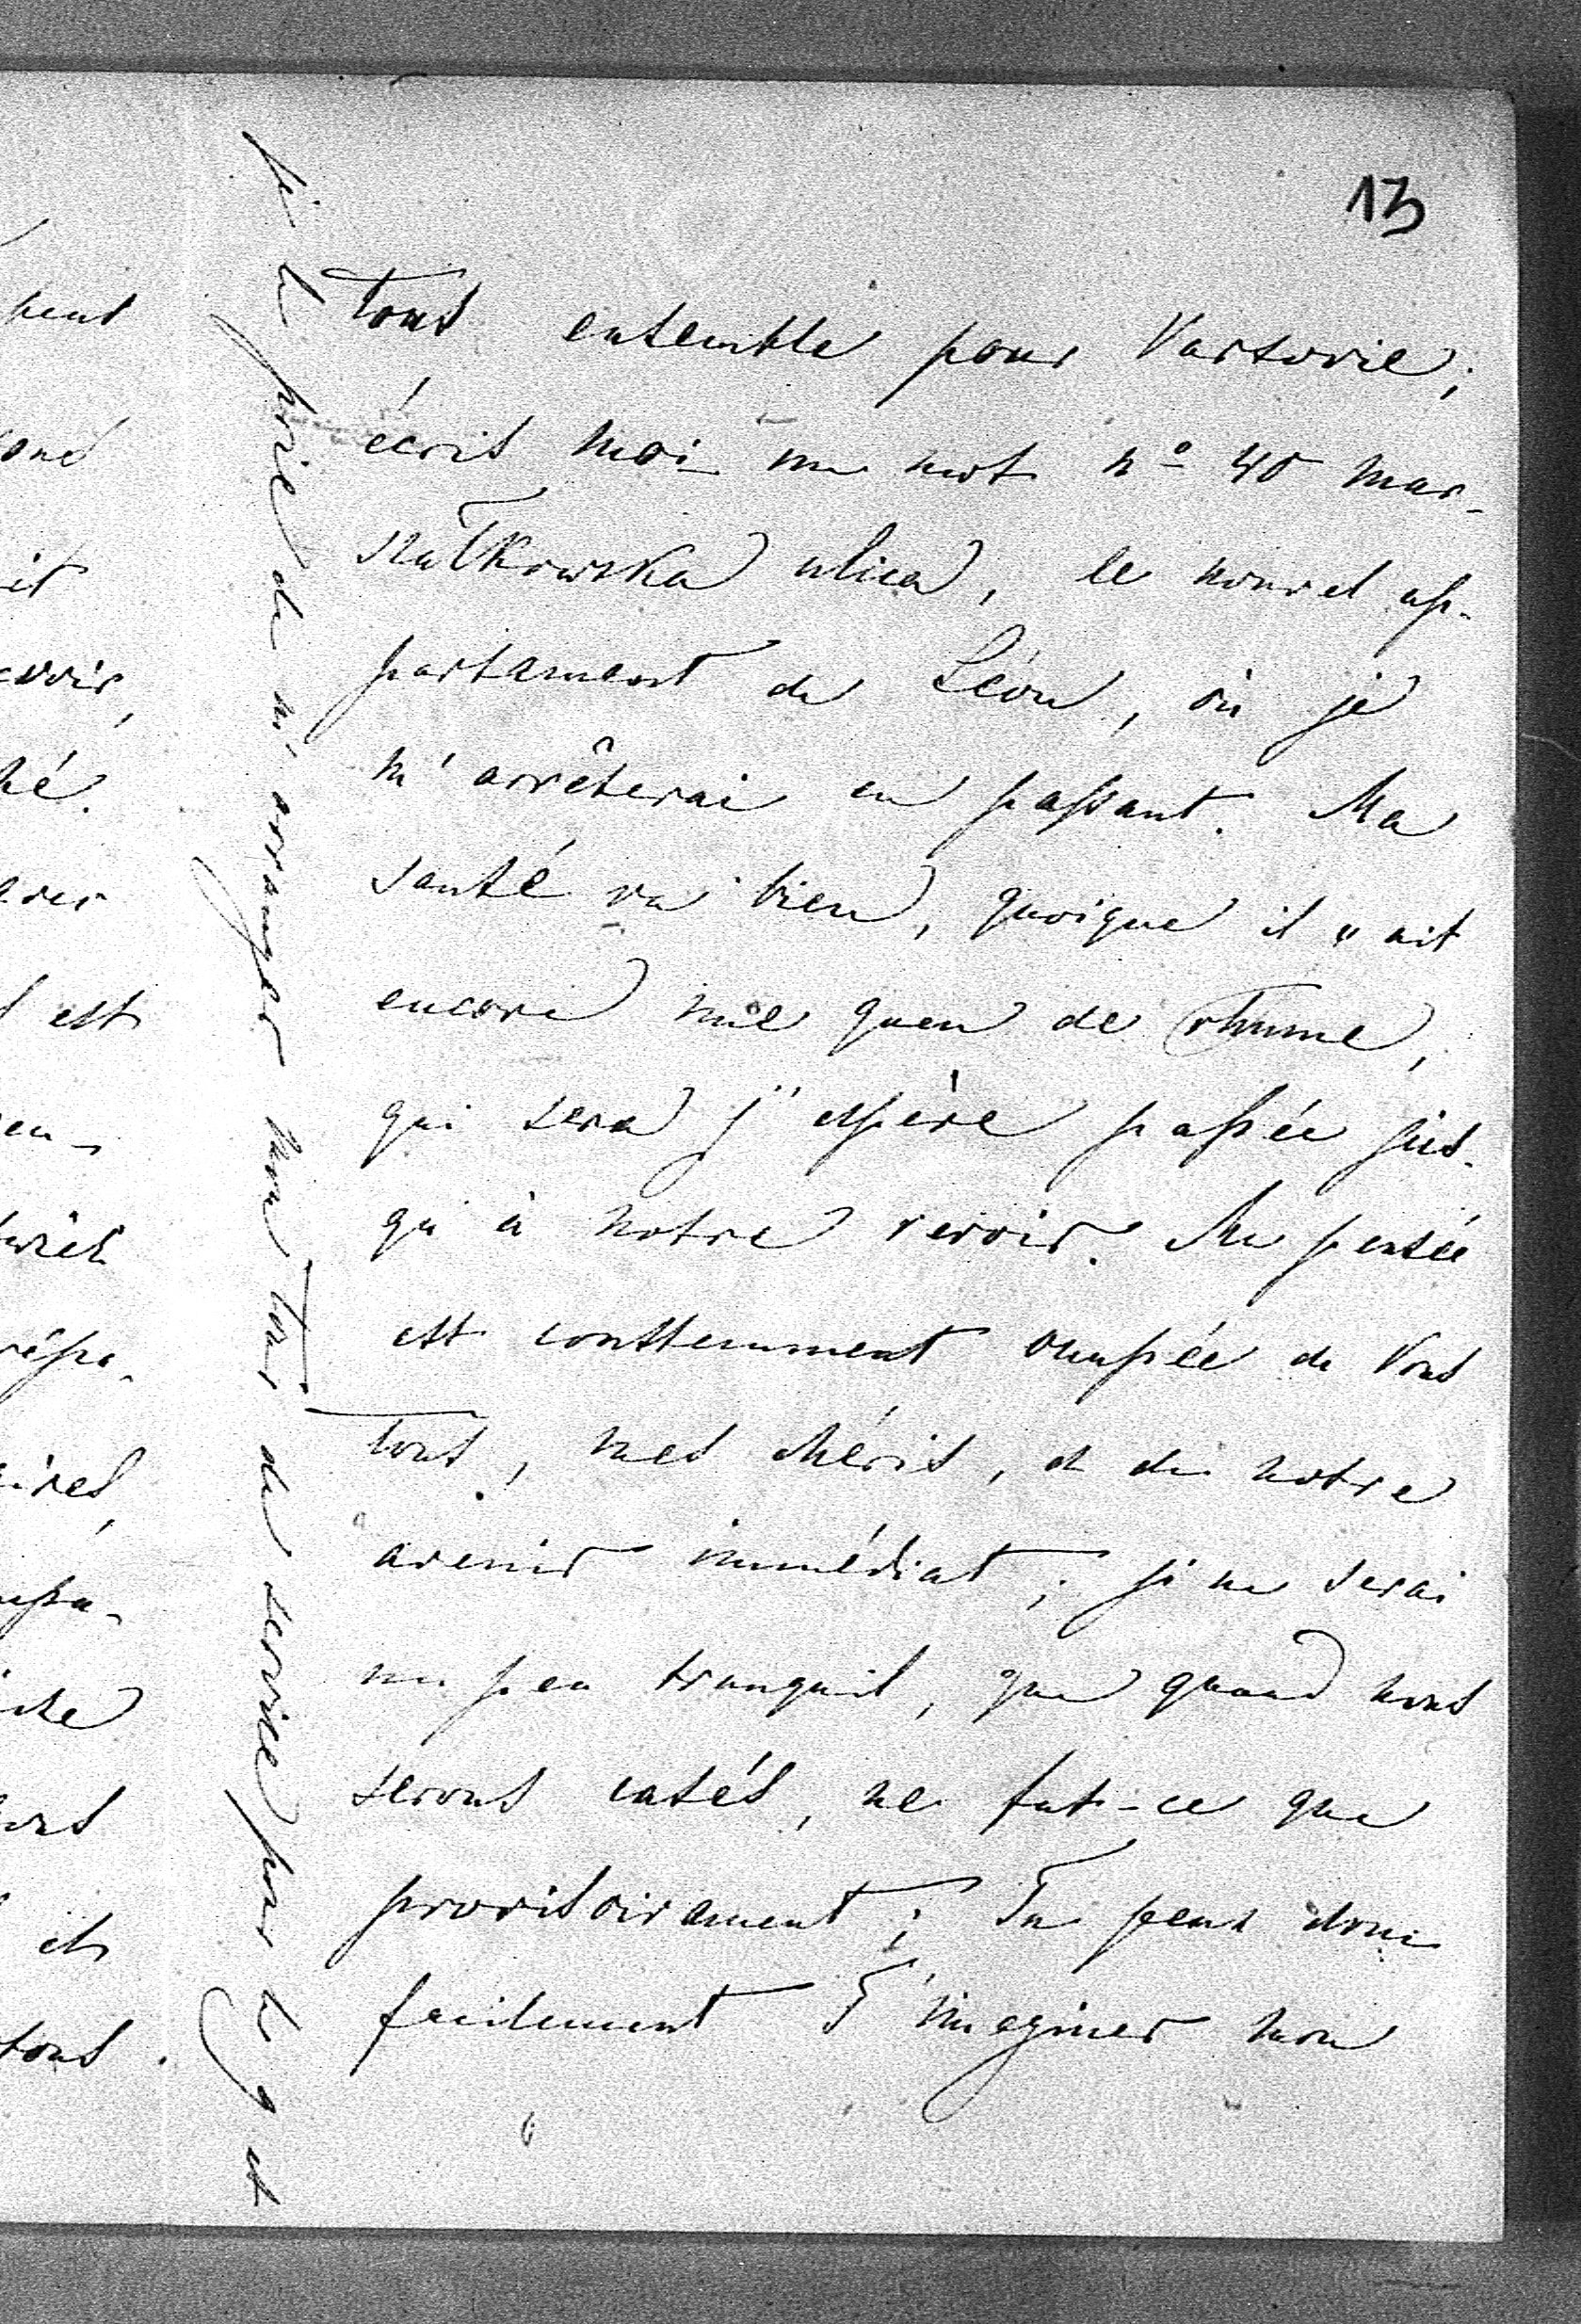 13
tous ensemble pour Varsovie;
écris moi un mot nº 40 Mar-
szałkowska ulica, le nouvel ap-
partament de Léon, où je
m'arrêterai en passant. Ma
santé va bien, quoique il y ait
encore une queu de rhume,
qui sera j'espère passée jus-
qu'à notre revoir. Ma pensée
est constemment occupée de Vous
tous, mes chéris, et de notre
avenir immédiat; je ne serai
un peu tranquil, que quand nous
serons casés, ne fut-ce que
provisoirement; Tu peux donc
facilement T'imaginer mon
je te prie de m'arranger un tour de service pour le 9 et
peut
it
est
et
tous.